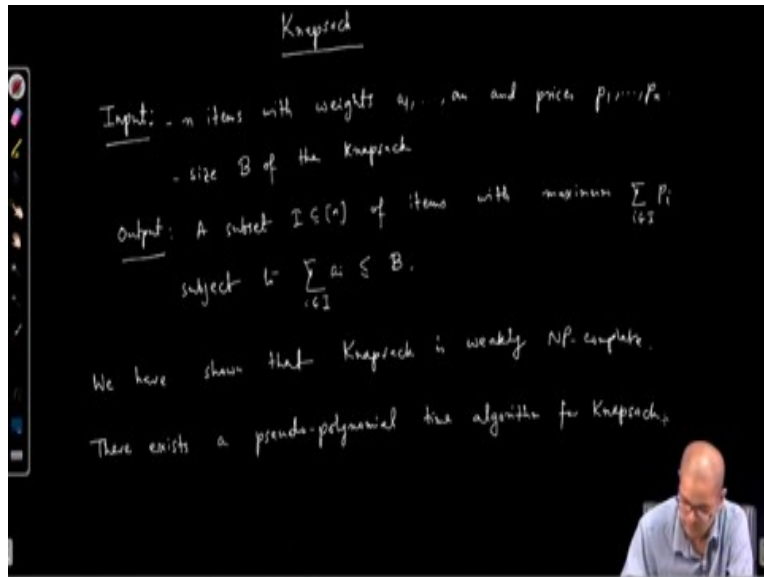 Knapsack
Input: - n items with weights a₁,..., aₙ and prices p₁,...,pₙ.
- size B of the Knapsack
Output: A subset I ⊆ [n] of items with maximum ∑_{i∈I} pᵢ
subject to ∑_{i∈I} aᵢ ≤ B.
We have shown that Knapsack is weakly NP-complete.
There exists a pseudo-polynomial time algorithm for Knapsack.